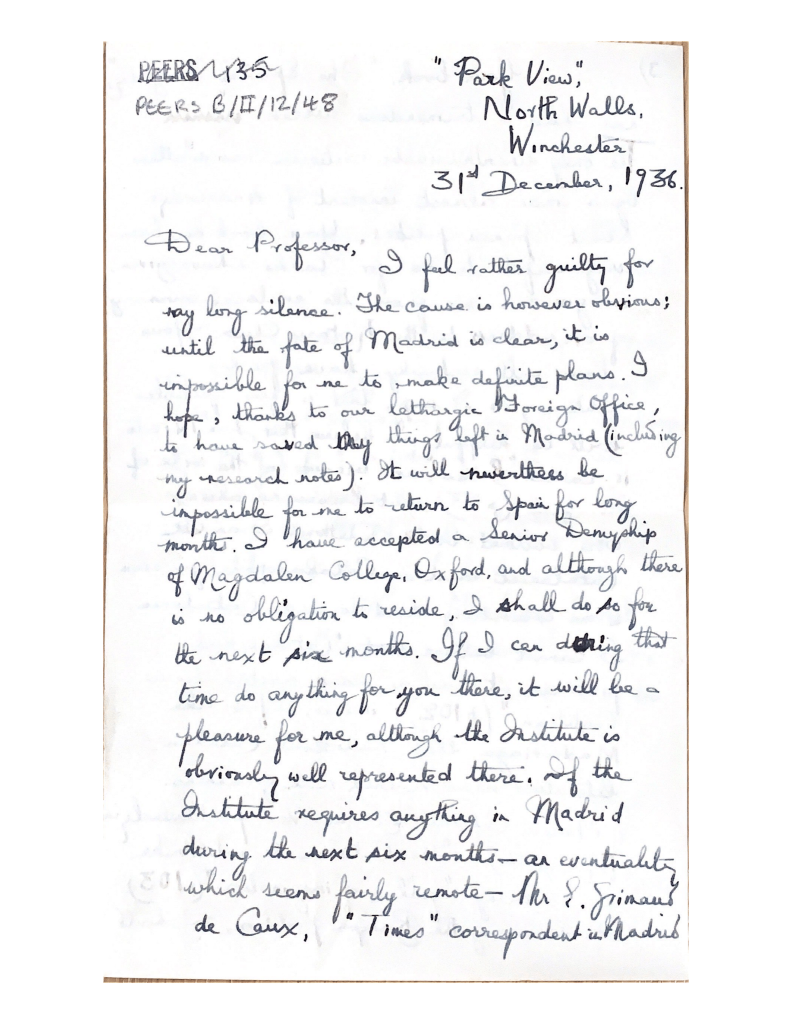 PEERS 435
PEERS B/II/12/48
"Park View",
North Walls,
Winchester
31st December, 1936.
Dear Professor,
I feel rather guilty for
my long silence. The cause is however obvious;
until the fate of Madrid is clear, it is
impossible for me to make definite plans. I
hope, thanks to our lethargic Foreign Office,
to have saved my things left in Madrid (including
my research notes). It will neverthess be
impossible for me to return to Spain for long
months. I have accepted a Senior Demyship
of Magdalen College, Oxford, and although there
is no obligation to reside, I shall do so for
the next six months. If I can during that
time do anything for you there, it will be a
pleasure for me, although the Institute is
obviously well represented there. If the
Institute requires anything in Madrid
during the next six months — an eventuality
which seems fairly remote — Mr E. Grimaud
de Caux, "Times" correspondent in Madrid